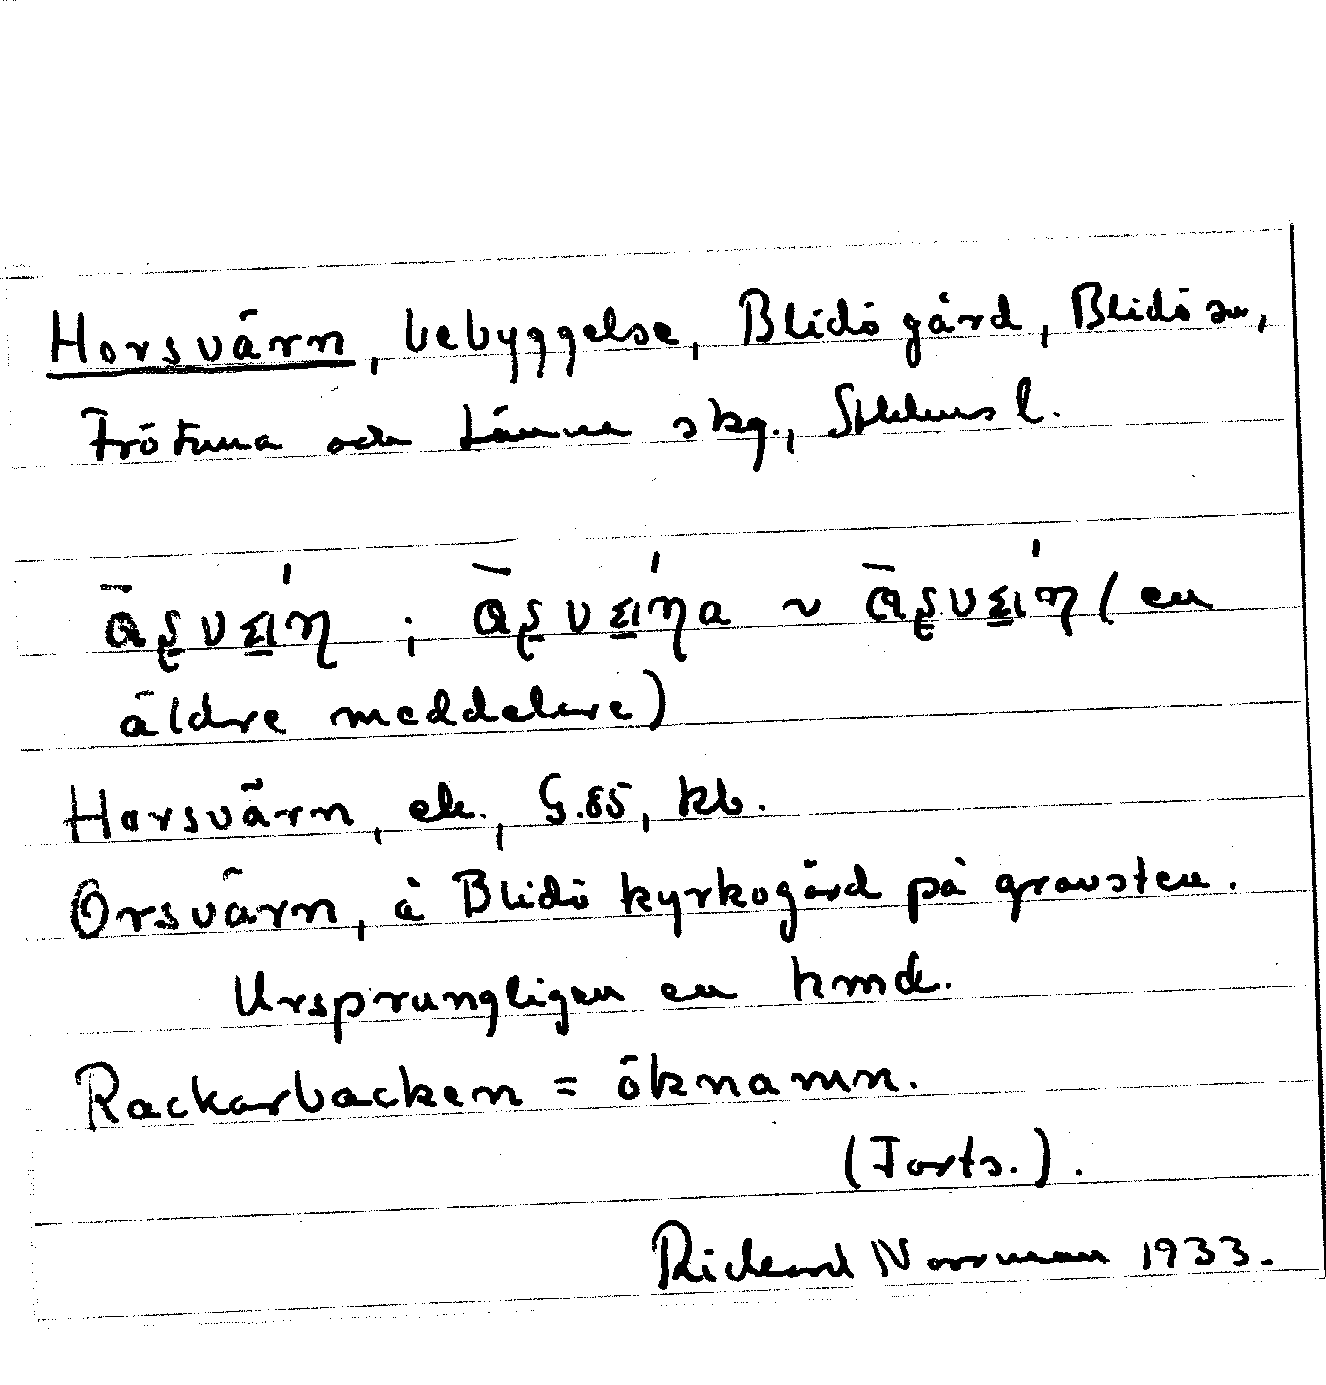 Horsvärn, bebyggelse, Blidö gård, Blidö sn,
Frötuna och Länna skg., Sthlms l.
; ~ (en
äldre meddelare)
Horsvärn, ek., G.85, kb.
Orsvärn, å Blidö kyrkogård på gravsten.
Ursprungligen en hmd.
Rackarbacken = öknamn.
(Forts.).
Rickard Norrman 1933.